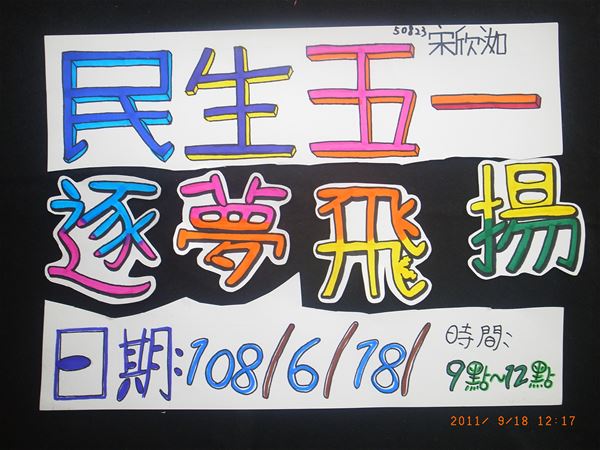 50823 宋欣洳
民生五一
逐夢飛揚
日期:108/6/18/
時間:
9點~12點
2011/ 9/18 12:17